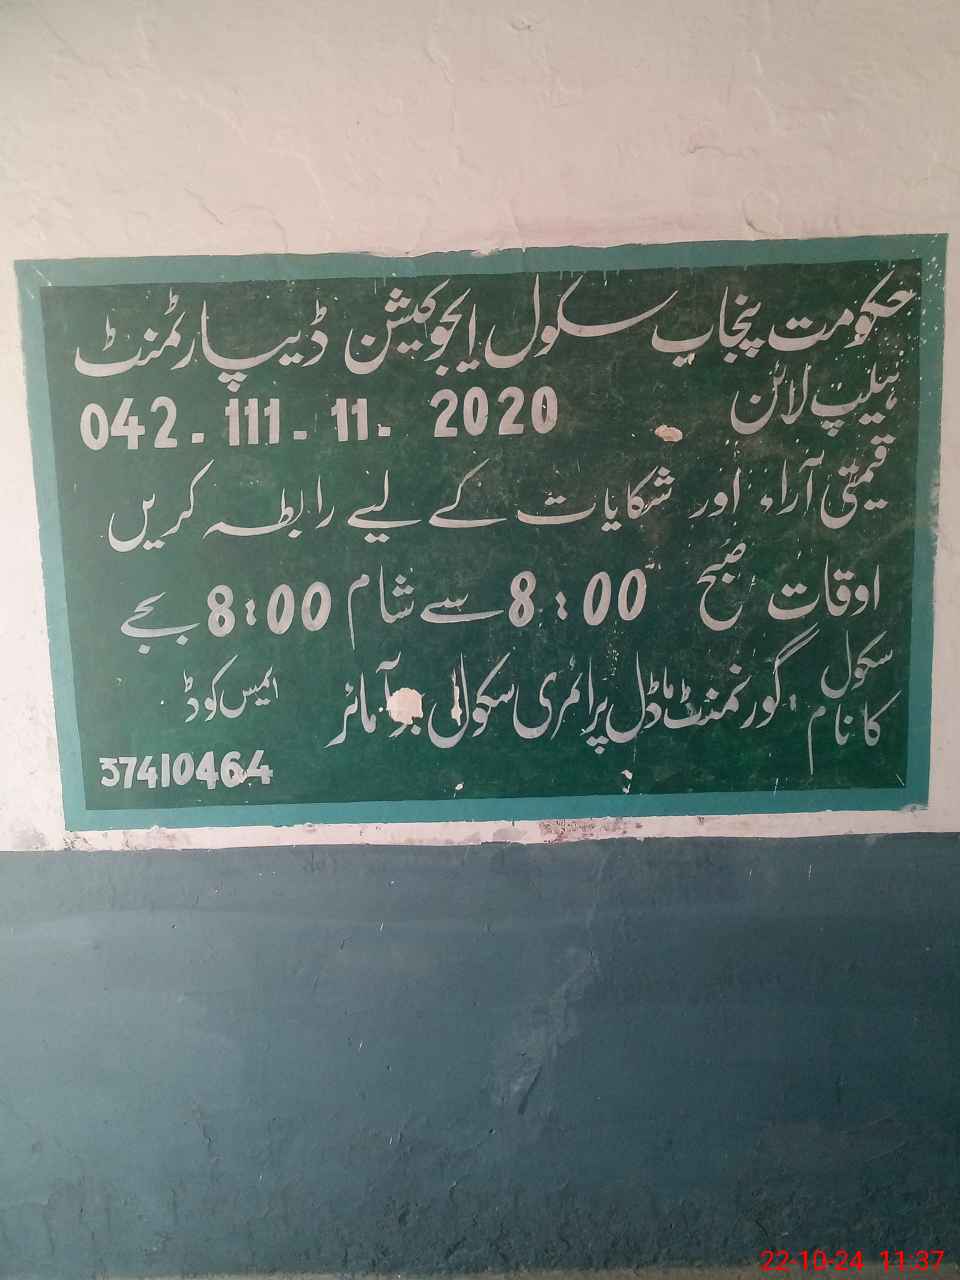 حکومت پنجاب سکول ایجوکیشن ڈیپارٹمنٹ
ہیلپ لائن 042-111-11-2020
قیمتی آراء اور شکایات کے لیے رابطہ کریں
اوقات صبح 8:00 سے شام 8:00 بجے
سکول کا نام گورنمنٹ ماڈل پرائمری سکول مائنر
ایمیس کوڈ
37410464
22-10-24 11:37